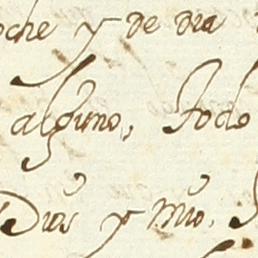 oche y de dia
alguno, Todo
Dios y mio.